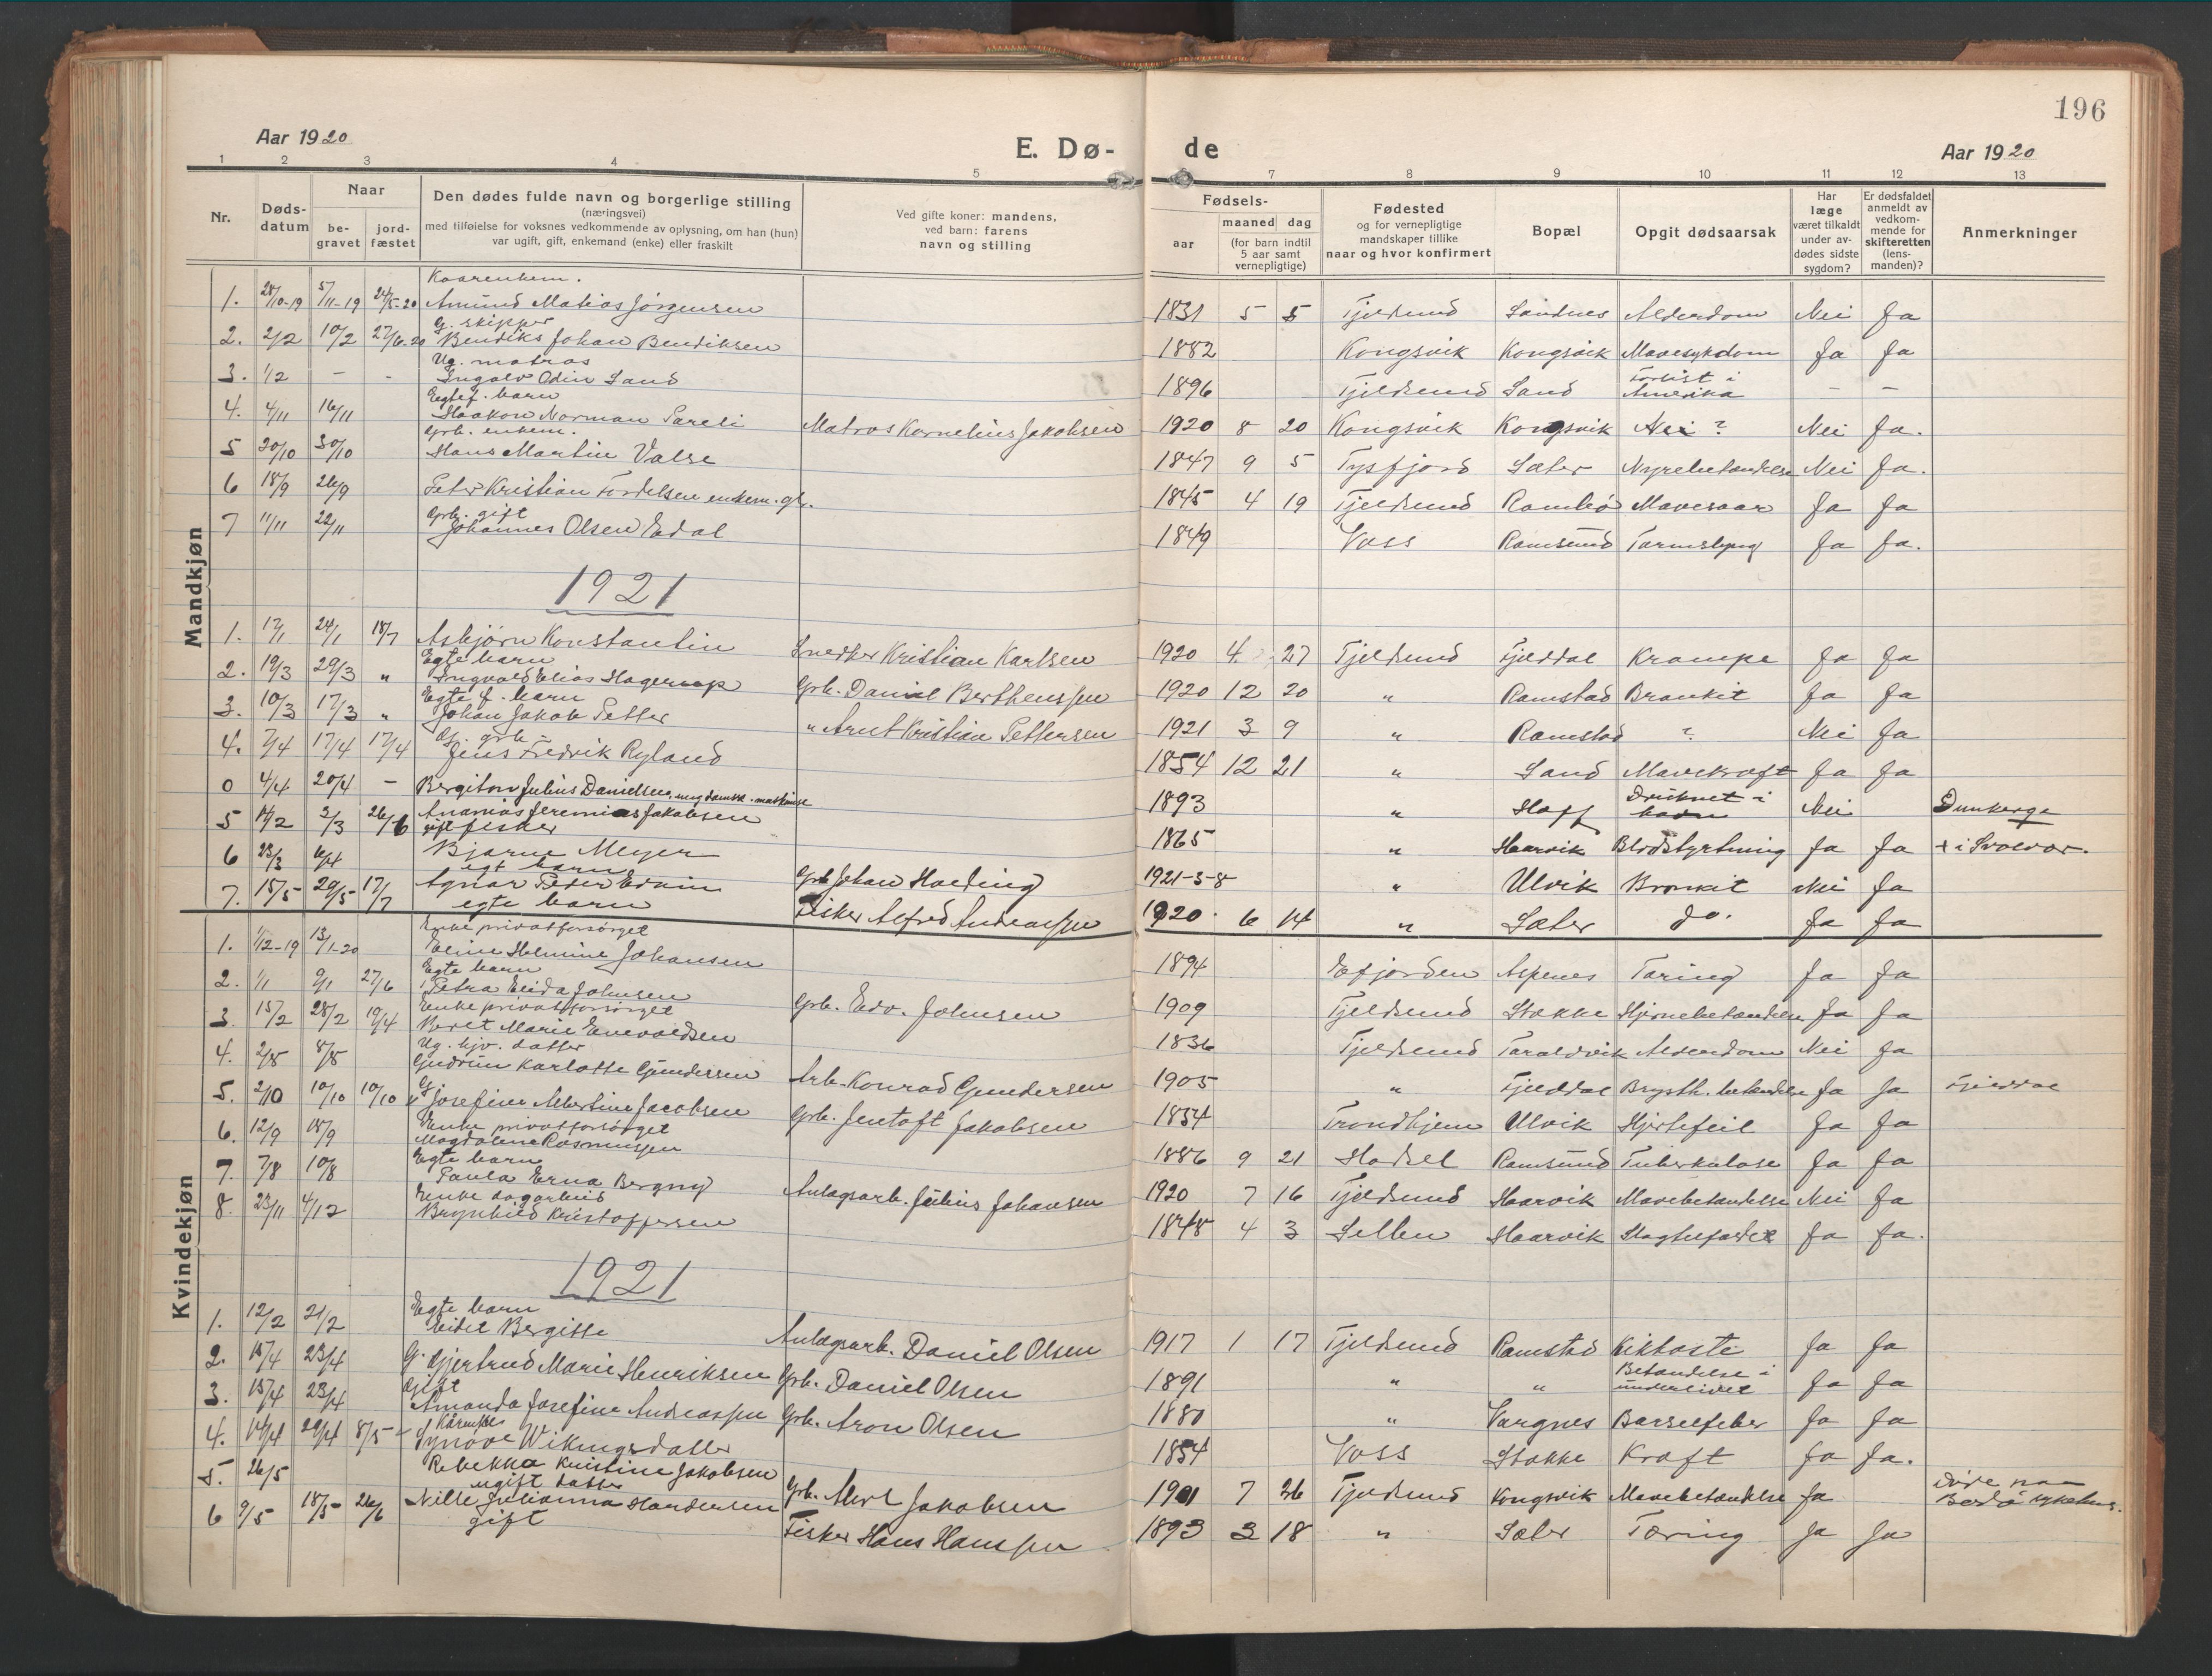 196
Aar 1920
E. Dø- de
Aar 1920
1 2 3 4 5 7 8 9 10 11 12 13
Nr.
Døds-
datum
Naar
be-
gravet
jord-
fæstet
Den dødes fulde navn og borgerlige stilling
(næringsvei)
med tilføielse for voksnes vedkommende av oplysning, om han (hun)
var ugift, gift, enkemand (enke) eller fraskilt
Ved gifte koner: mandens,
ved barn: farens
navn og stilling
Fødsels-
aar
maaned dag
(for barn indtil
5 aar samt
vernepligtige)
Fødested
og for vernepligtige
mandskaper tillike
naar og hvor konfirmert
Bopæl
Opgit dødsaarsak
Har
læge
været tilkaldt
under av-
dødes sidste
sygdom?
Er dødsfaldet
anmeldt av
vedkom-
mende for
skifteretten
(lens-
manden)?
Anmerkninger
Mandkjøn
Kaarenkem.
1. 28/10-19 5/11-19 24/5-20 Amund Matias Jørgensen 1831 5 5 Tjeldsund Sandnes Alderdom Nei Ja
G. skipper
2. 2/2 10/2 27/6-20 Bendiks Johan Bendiksen 1882 Kongsvik Kongsvik Mavesykdom Ja Ja
Ug. matros
3. 1/2 – - Ingolv Odin Sand 1896 Tjeldsund Sand Forlist i Amerika – –
Egtef. barn
4. 4/11 16/11 Haakon Norman Sareli Matros Kornelius Jakobsen 1920 8 20 Kongsvik Kongsvik Nei ? Nei Ja.
Grb. enkem.
5 20/10 30/10 Hans Martin Valse 1847 9 5 Tysfjord Sæter Nyrebetændelse Nei Ja.
6 18/9 26/9 Peter Kristian Fordelsen enkem. gb. 1845 4 19 Tjeldsund Rambø Mavesaar Ja Ja
Grb. gift
7 11/11 22/11 Johannes Olsen Edal 1849 Voss Ramsund Tarmslyng Ja Ja.
1921
1. 17/1 24/1 18/7 Asbjørn Konstantin Snedker Kristian Karlsen 1920 4. 27 Tjeldsund Fjelddal Krampe Ja Ja
Egte barn
2. 19/3 29/3 " Ingvald Elias Hagerup Grb. Daniel Berthenssen 1920 12 20 " Ramstad Bronkit Ja Ja
Egte f. barn
3. 10/3 17/3 " Johan Jakob Petter " Arnt Kristian Pettersen 1921 3 9 " Ramstad ? Nei Ja
Gf. grb.
4. 7/4 17/4 17/4 Jens Fredrik Ryland 1854 12 21 " Sand Mavekræft Ja Ja
0 4/4 20/4 – Bergiton Julius Danielsen, 1893 " Hoff Druknet i havn Nei Dunkerge
5 14/2 3/3 26/6 Ananias Jeremias Jakobsen 1865 " Haarvik Blodstyrtning Ja Ja + i Svolvær.
gift fisker
6 23/3 6/4 Bjarne Meyer Grb Johan Hæding 1921-3-8 " Ulvik Bronkit Nei Ja
egt barn
7. 15/5 29/5 17/7 Agnar Peder Edvin Fisker Alfred Andreassen 1920. 6 14 " Sæter do. Ja Ja
egte barn
Kvindekjøn
Enke privatforsørget
1. 1/12-19 13/1-20 Eline Helmine Johansen 1894 Efjorden Aspenes Tæring Ja Ja
Egte barn
2. 1/1 9/1 27/6 Petra Elida Johnsen Grb. Edv. Johnsen 1909 Tjeldsund Stokke Hjernebetændelse Ja Ja
Enke privatforsørget
3. 15/2 28/2 19/4 Beret Marie Enevoldsen 1836 Tjeldsund Taraldvik Alderdom Nei Ja
Ug. hjv. datter
4. 2/8 8/8 Gudrun Karlotte Gundersen Arb. Konrad Gundersen 1905 " Fjelddal Brysth. betændelse Ja Ja Fjelddal
G.
5. 2/10 10/10 10/10 Josefine Albertine Jacobsen Grb. Jentoft Jakobsen 1834 Trondhjem Ulvik Hjertefeil Ja Ja
Enke privatforsørget
6. 12/9 18/9 Magdalena Rasmussen 1886 9 21 Hadsel Ramsund Tuberkulose Ja Ja
Egte barn
7. 7/8 10/8 Paula Erna Bergny Anlægsarb. Julius Johansen 1920 7 16 Tjeldsund Haarvik Mavebetændelse Nei Ja
Enke dagarbeid
8. 23/11 4/12 Brynhild Kristoffersen 1848 4 3 Haarvik Ja Ja.
1921
Egte barn
1. 12/2 21/2 Eidel Bergitte Anlægsarb. Daniel Olsen 1917 1 17 Tjeldsund Ramstad Kikhoste Ja Ja
2. 15/4 23/4 G. Gjertrud Marie Henriksen Grb. Daniel Olsen 1891 " " Betændelse i underlivet Ja Ja
Gift
3. 15/4 23/4 Amanda Josefine Andreassen Grb. Aron Olsen 1880 " Vargnes Barselfeber Ja Ja
4. 14/4 29/4 8/5 Synøve Wikingsdatter 1854 Voss Stokke Kræft Ja Ja.
5. 26/5 Rebekka Kristine Jakobsen Grb. Jakobsen 1901 7 26 Tjeldsund Kongsvik Mavebetændelse Ja Døde paa Bodø sykehus.
ugift datter
6 9/5 18/5 26/6 Nille Julianna Handersen Fisker Hans Hanssen 1893 3 18 " Sæter Tæring Ja Ja
gift